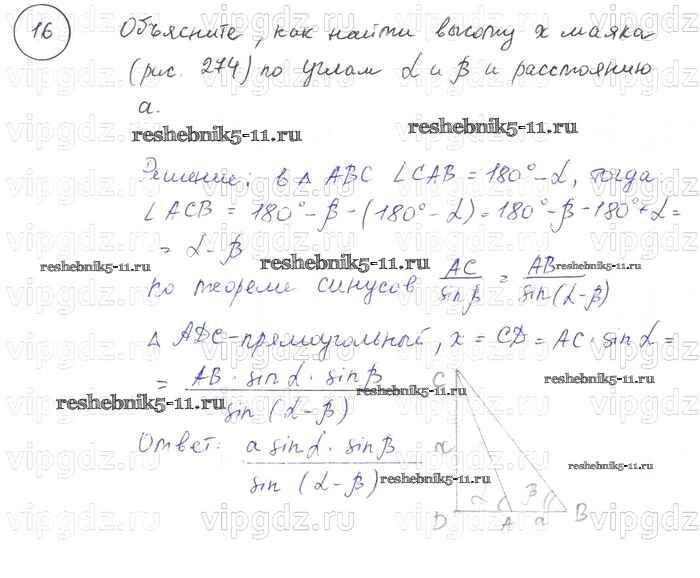 16 Объясните, как найти высоту x маяка
(рис. 274) по углам α и β и расстоянию
a.
reshebnik5-11.ru reshebnik5-11.ru
Решение: в △ ABC ∠CAB = 180° - α, тогда
∠ACB = 180° - β - (180° - α) = 180° - β - 180° + α =
= α - β
reshebnik5-11.ru reshebnik5-11.ru reshebnik5-11.ru
по теореме синусов AC/sin β = AB/sin(α - β)
△ ADC - прямоугольный, x = CD = AC · sin α =
= AB · sin α · sin β / sin (α - β)
reshebnik5-11.ru reshebnik5-11.ru
Ответ: a sin α · sin β / sin (α - β)
reshebnik5-11.ru reshebnik5-11.ru
C
x
α β
D A a B
vipgdz.ru